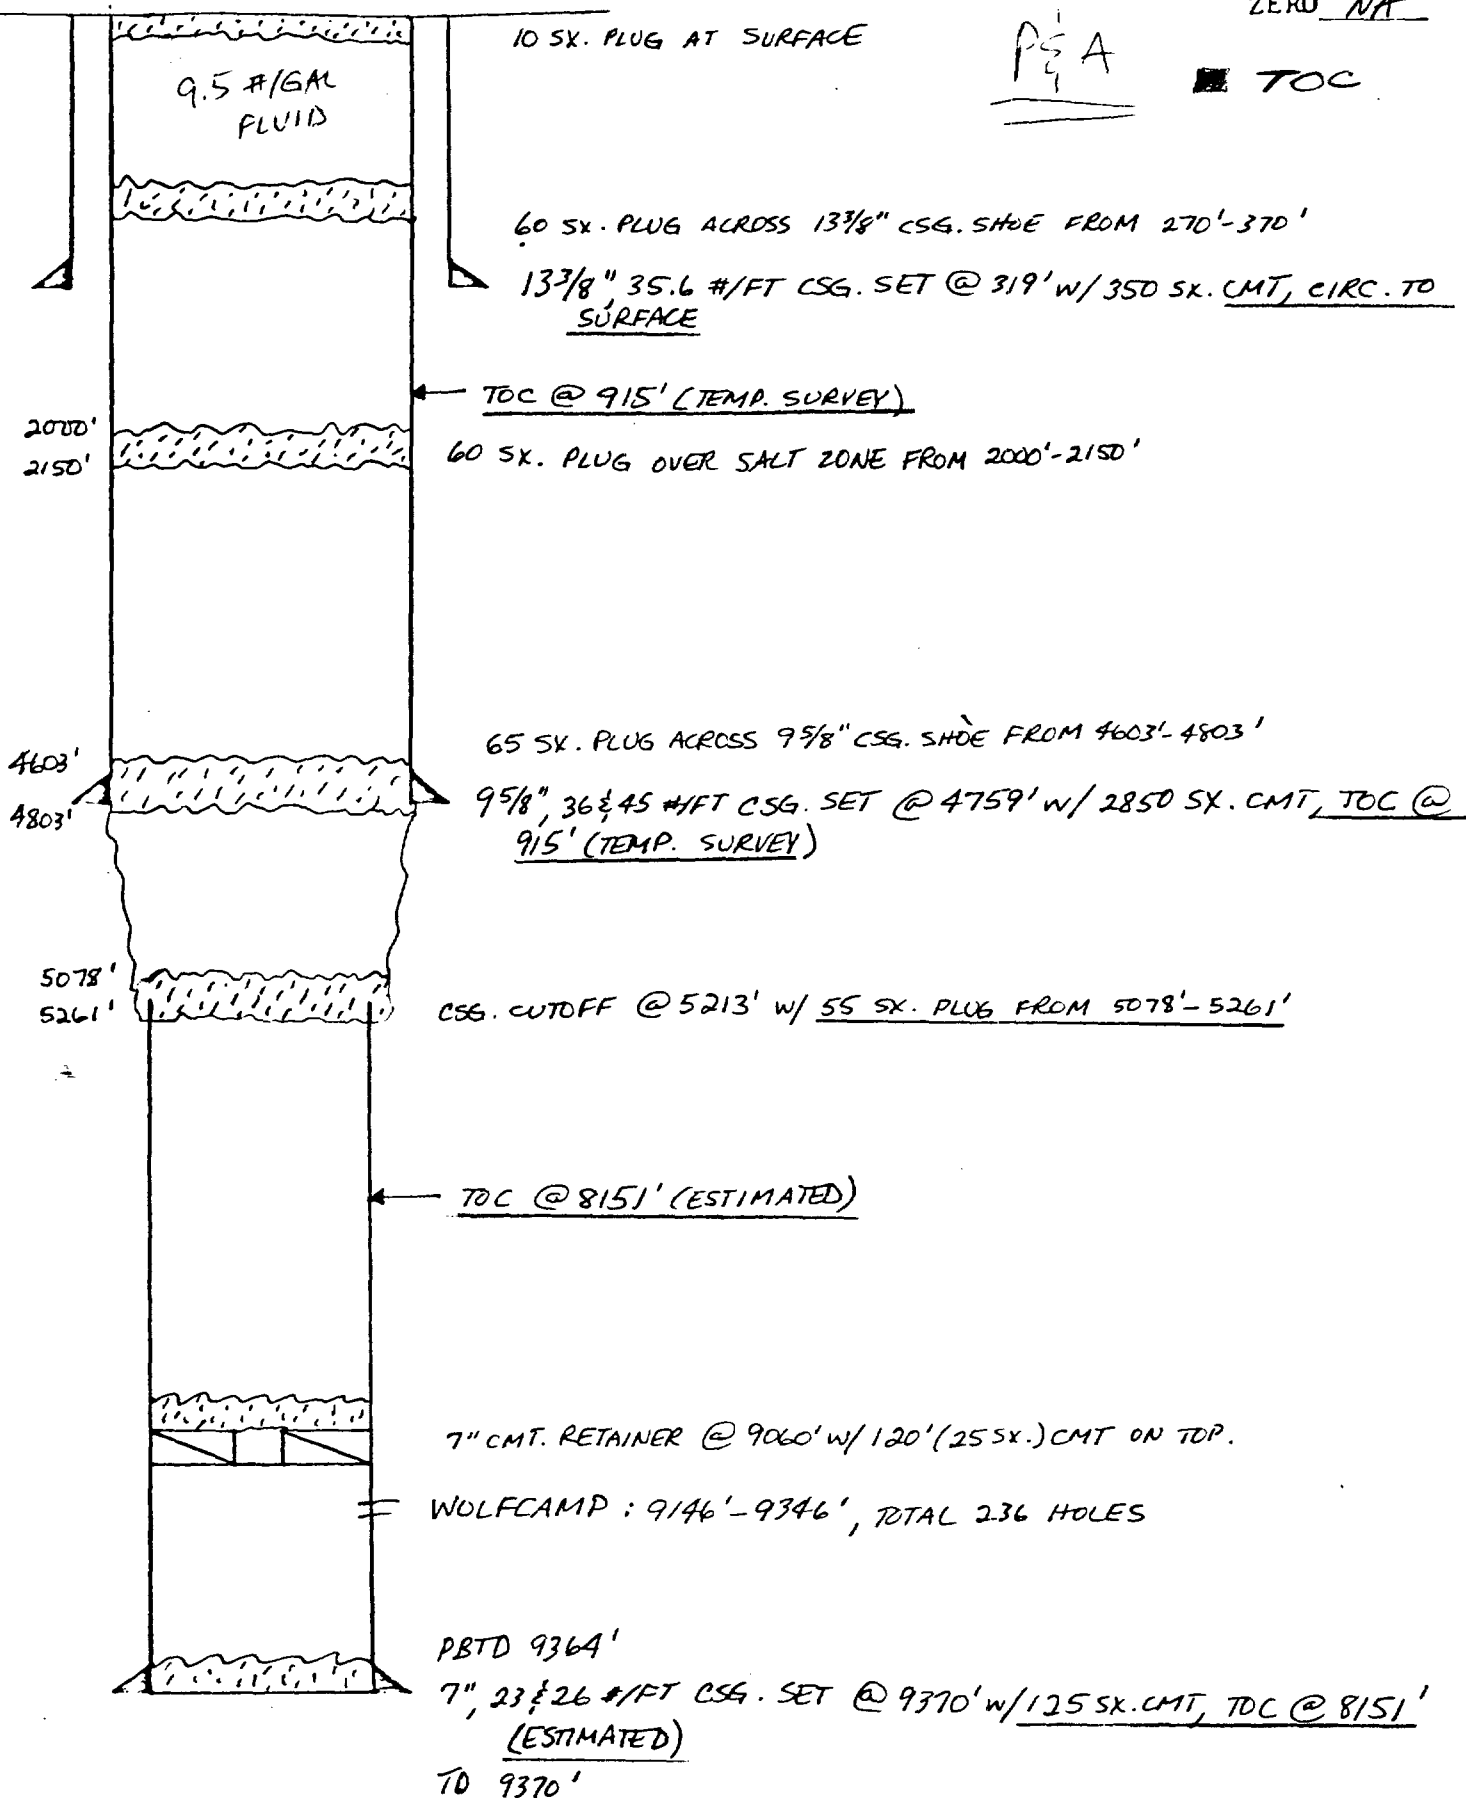 ZERO NA
10 SX. PLUG AT SURFACE
P & A
TOC
9.5 #/GAL
FLUID
60 SX. PLUG ACROSS 13 3/8" CSG. SHOE FROM 270'-370'
13 3/8", 35.6 #/FT CSG. SET @ 319' W/ 350 SX. CMT, CIRC. TO
SURFACE
TOC @ 915' (TEMP. SURVEY)
2000'
2150'
60 SX. PLUG OVER SALT ZONE FROM 2000'-2150'
65 SX. PLUG ACROSS 9 5/8" CSG. SHOE FROM 4603'-4803'
4603'
4803'
9 5/8", 36 & 45 #/FT CSG. SET @ 4759' W/ 2850 SX. CMT, TOC @
915' (TEMP. SURVEY)
5078'
5261'
CSG. CUTOFF @ 5213' W/ 55 SX. PLUG FROM 5078'-5261'
TOC @ 8151' (ESTIMATED)
7" CMT. RETAINER @ 9060' W/ 120' (25 SX.) CMT ON TOP.
WOLFCAMP : 9146'-9346', TOTAL 236 HOLES
PBTD 9364'
7", 23 & 26 #/FT CSG. SET @ 9370' W/ 125 SX. CMT, TOC @ 8151'
(ESTIMATED)
TD 9370'